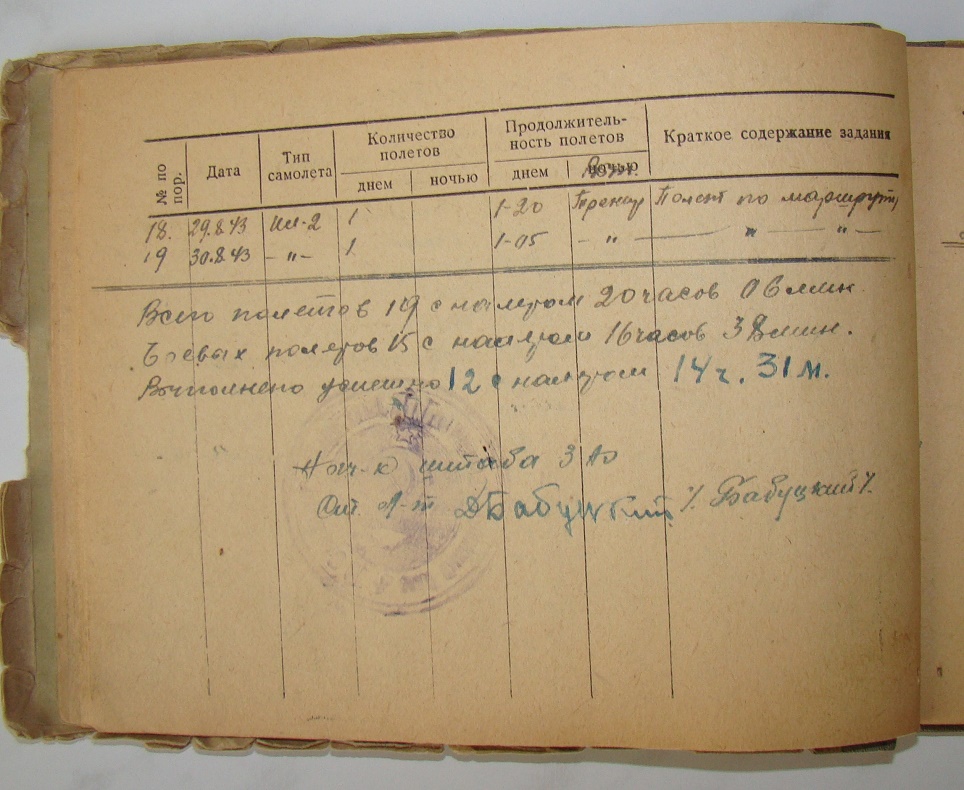 № по пор. Дата Тип самолета Количество полетов Продолжительность полетов Краткое содержание задания
днем ночью днем ночью
18. 29.8.43 Ил-2 1 1-20 Тренир Полет по маршруту
19 30.8.43 -"- 1 1-05 -"- -"- -"-
Всего полетов 19 с налетом 20 часов 06 мин.
Боевых полетов 15 с налетом 16 часов 38 мин.
Выполнено успешно 12 с налетом 14 ч. 31 м.
Нач-к штаба 3 АЭ
Ст. Л-т Бабуцкий /Бабуцкий/.